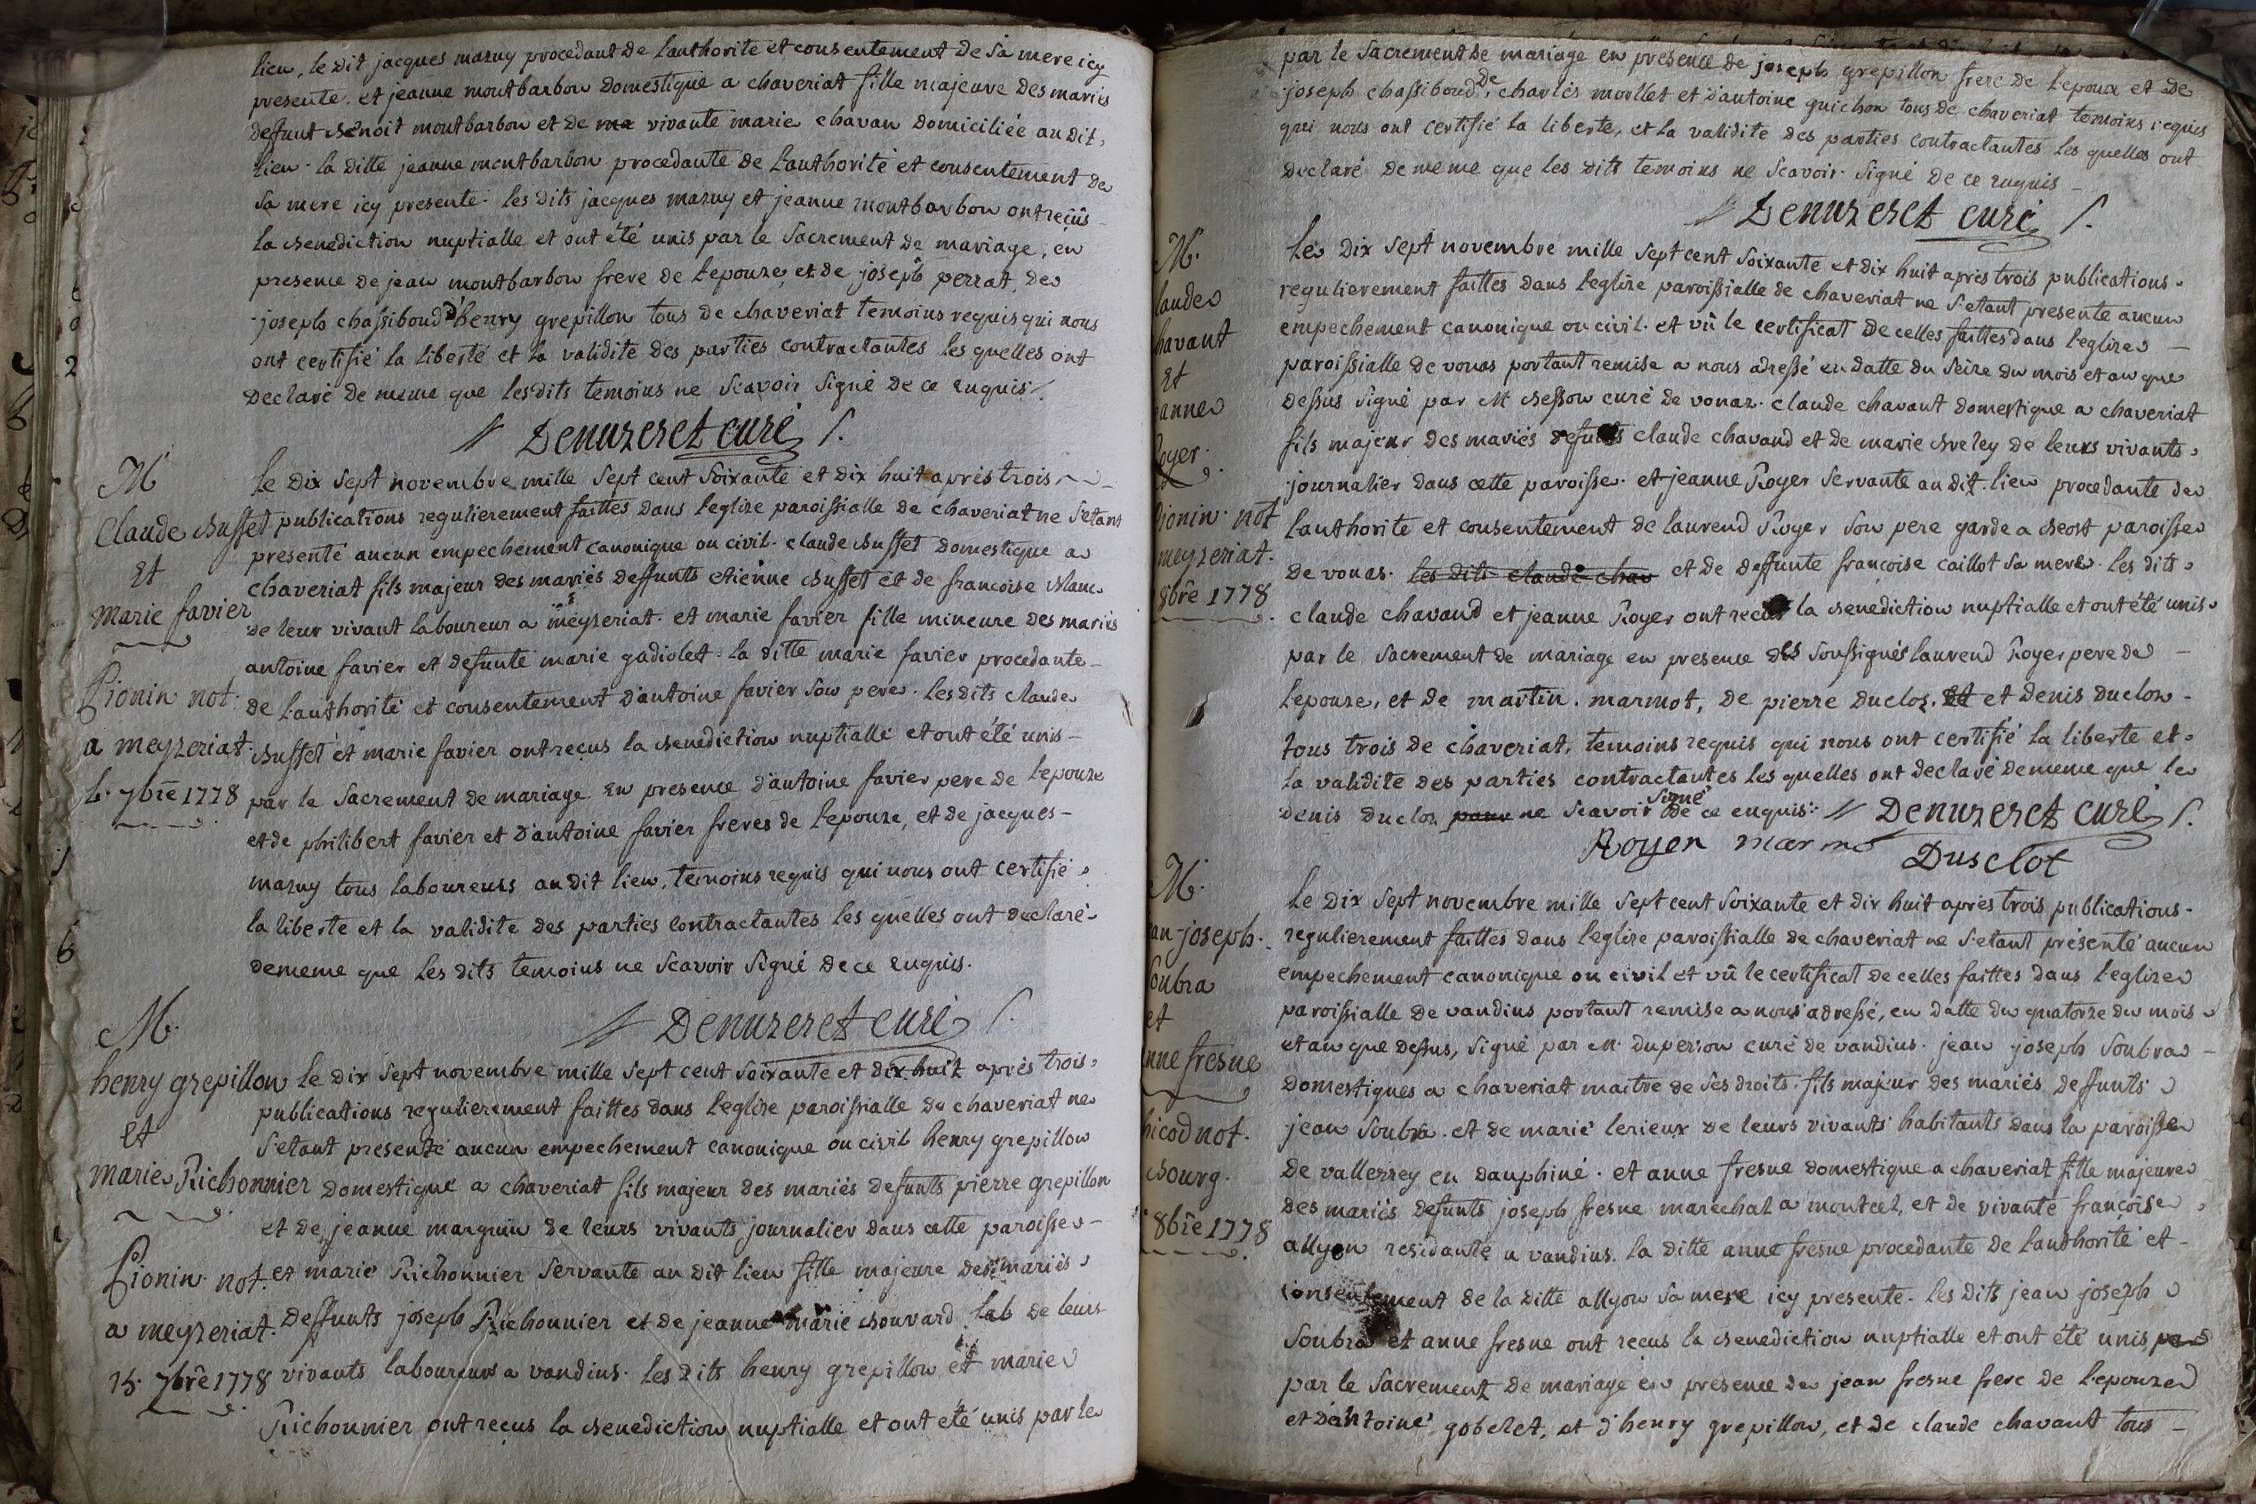 lieu, le dit jacques mazuy procedant de l'authorite et consentement de sa mere icy
presente. et jeanne montbarbon domestique a chaveriat fille majeure des mariés
deffunt Benoit montbarbon et de vivante marie chavan domiciliée au dit
lieu. la ditte jeanne montbarbon procedante de l'authorité et consentement de
sa mere icy presente. les dits jacques mazuy et jeanne montbarbon ont reçûs
la Benediction nuptialle et ont été unis par le sacrement de mariage, en
presence de jean montbarbon frere de l'epouze, et de joseph perrat, de
joseph chassiboud d'henry grepillon tous de chaveriat temoins requis qui nous
ont certifié la liberté et la validité des parties contractantes les quelles ont
declaré de meme que les dits temoins ne scavoir signé de ce enquis
Denuzeret curé
M
Claude Buffet
et
marie favier
Pionin not.
a meyzeriat.
7bre 1778
le dix sept novembre mille sept cent soixante et dix huit après trois
publications regulierement faittes dans l'eglize paroissialle de chaveriat ne s'etant
presenté aucun empechement canonique ou civil. claude Buffet domestique a
chaveriat fils majeur des mariés deffunts etienne Buffet et de francoise Blanc
de leur vivant laboureur a meyzeriat. et marie favier fille mineure des mariés
antoine favier et defunte marie gadiolet. la ditte marie favier procedante
de l'authorité et consentement d'antoine favier son pere. les dits claude
Buffet et marie favier ont reçus la Benediction nuptialle et ont été unis
par le sacrement de mariage en presence d'antoine favier pere de l'epouze
et de philibert favier et d'antoine favier freres de l'epouze, et de jacques
mazuy tous laboureurs au dit lieu, temoins requis qui nous ont certifié
la liberte et la validite des parties contractantes les quelles ont declaré
de meme que les dits temoins ne scavoir signé de ce enquis.
Denuzeret curé
M.
henry grepillon
et
marie Richonnier
Pionin not.
a meyzeriat.
15. 7bre 1778
le dix sept novembre mille sept cent soixante et dix huit après trois
publications regulierement faittes dans l'eglize paroissialle de chaveriat ne
s'etant presenté aucun empechement canonique ou civil henry grepillon
domestique a chaveriat fils majeur des mariés defunts pierre grepillon
et de jeanne marguin de leurs vivants journalier dans cette paroisse
et marie Richonnier servante au dit lieu fille majeure des mariés
deffunts joseph Richonnier et de jeanne marie Bouvard de leurs
vivants laboureurs a vandins. les dits henry grepillon et marie
Richonnier ont reçus la Benediction nuptialle et ont eté unis par le
par le sacrement de mariage en presence de joseph grepillon frere de l'epoux et de
joseph chassiboud, de charles morllet et d'antoine guichon tous de chaveriat temoins requis
qui nous ont certifié la liberte, et la validite des parties contractantes les quelles ont
declaré de meme que les dits temoins ne scavoir signé de ce enquis
Denuzeret curé
M.
laude
havant
et
anne
oyer.
Pionin. not
meyzeriat.
8bre 1778
le dix sept novembre mille sept cent soixante et dix huit après trois publications
regulierement faittes dans l'eglize paroissialle de chaveriat ne s'etant presenté aucun
empechement canonique ou civil. et vû le certificat de celles faittes dans l'eglize
paroissialle de vonas portant remise a nous adressé en datte du seize du mois et an que
dessus signé par Mr Besson curé de vonaz. claude chavant domestique a chaveriat
fils majeur des mariés defunts claude chavand et de marie Breley de leurs vivants
journalier dans cette paroisse. et jeanne Royer servante au dit lieu procedante de
l'authorite et consentement de laurend Royer son pere garde a Beost paroisse
de vonas. les dits claude chav et de deffunte françoise caillot sa mere. les dits
claude chavand et jeanne Royer ont recus la Benediction nuptialle et ont été unis
par le sacrement de mariage en presence des soussignés laurend Royer pere de
l'epouze, et de martin marmot, de pierre duclos, et et denis duclos
tous trois de chaveriat, temoins requis qui nous ont certifié la liberte et
la validité des parties contractantes les quelles ont declaré de meme que le
denis duclos ne scavoir signé de ce enquis. Denuzeret curé
Royer marmo
Dusclot
M.
an joseph
oubra
et
nne fresne
hicod not.
Bourg.
8bre 1778
le dix sept novembre mille sept cent soixante et dix huit après trois publications
regulierement faittes dans l'eglize paroissialle de chaveriat ne s'etant présenté aucun
empechement canonique ou civil et vû le certificat de celles faittes dans l'eglize
paroissialle de vandins portant remise a nous adressé, en datte du quatorze du mois
et an que dessus, signé par m. duperson curé de vandins. jean joseph soubra
domestiques a chaveriat maitre de ses droits fils majeur des mariés deffunts
jean soubra et de marie lerieux de leurs vivants habitants dans la paroisse
de vallerrey en dauphiné. et anne fresne domestique a chaveriat fille majeure
des mariés defunts joseph fresne marechal a montcel, et de vivante françoise
allyon residante a vandins. la ditte anne fresne procedante de l'authorité et
consentement de la ditte allyon sa mere icy presente. les dits jean joseph
soubra et anne fresne ont recus la Benediction nuptialle et ont été unis par
par le sacrement de mariage en presence de jean fresne frere de l'epouze
et d'antoine gobelet, et d'henry grepillon, et de claude chavant tous